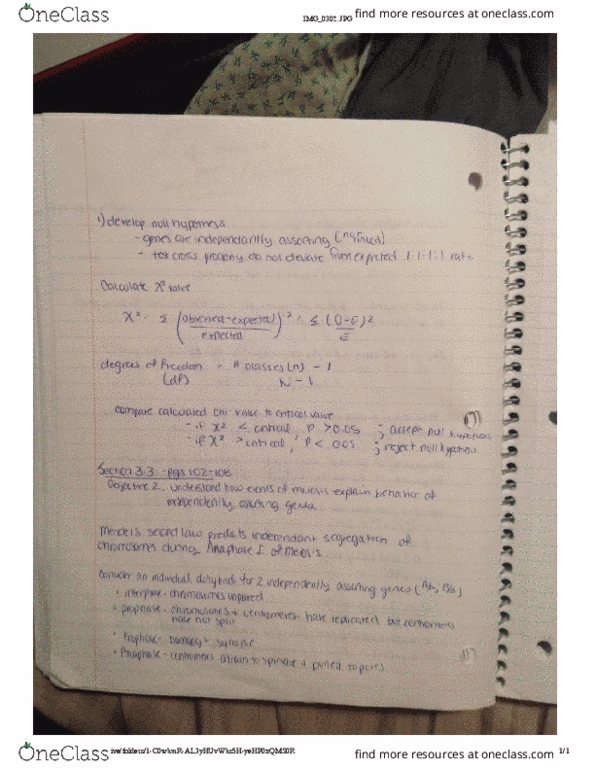 OneClass
IMG_0305.JPG
find more resources at oneclass.com
1) develop null hypothesis
- genes are independantly assorting
- test cross progeny do not deviate from expected 1:1:1:1 ratio
Calculate X² value
X² = Σ (observed-expected / expected)² = Σ (O-E)² / E
degrees of Freedom = # classes (n) - 1
(df) N - 1
compare calculated chi value to critical value
- if X² < critical, P > 0.05 ; accept null hypothesis
- if X² > critical, P < 0.05 ; reject null hypothesis
Section 3.3 - pgs 102-108
Objective 2. understand how events of meiosis explain behavior of
independently assorting genes
Mendel's second law predicts independant segregation of
chromosomes during Anaphase I of meiosis
Consider an individual dihybrid for 2 independently assorting genes
• interphase - chromosomes unpaired
• prophase - chromosomes + centromeres have replicated but centromeres
have not split
• Prophase - synapse
• Anaphase - attach to spindle + pulled to poles
OneClass
find more resources at oneclass.com
1/1